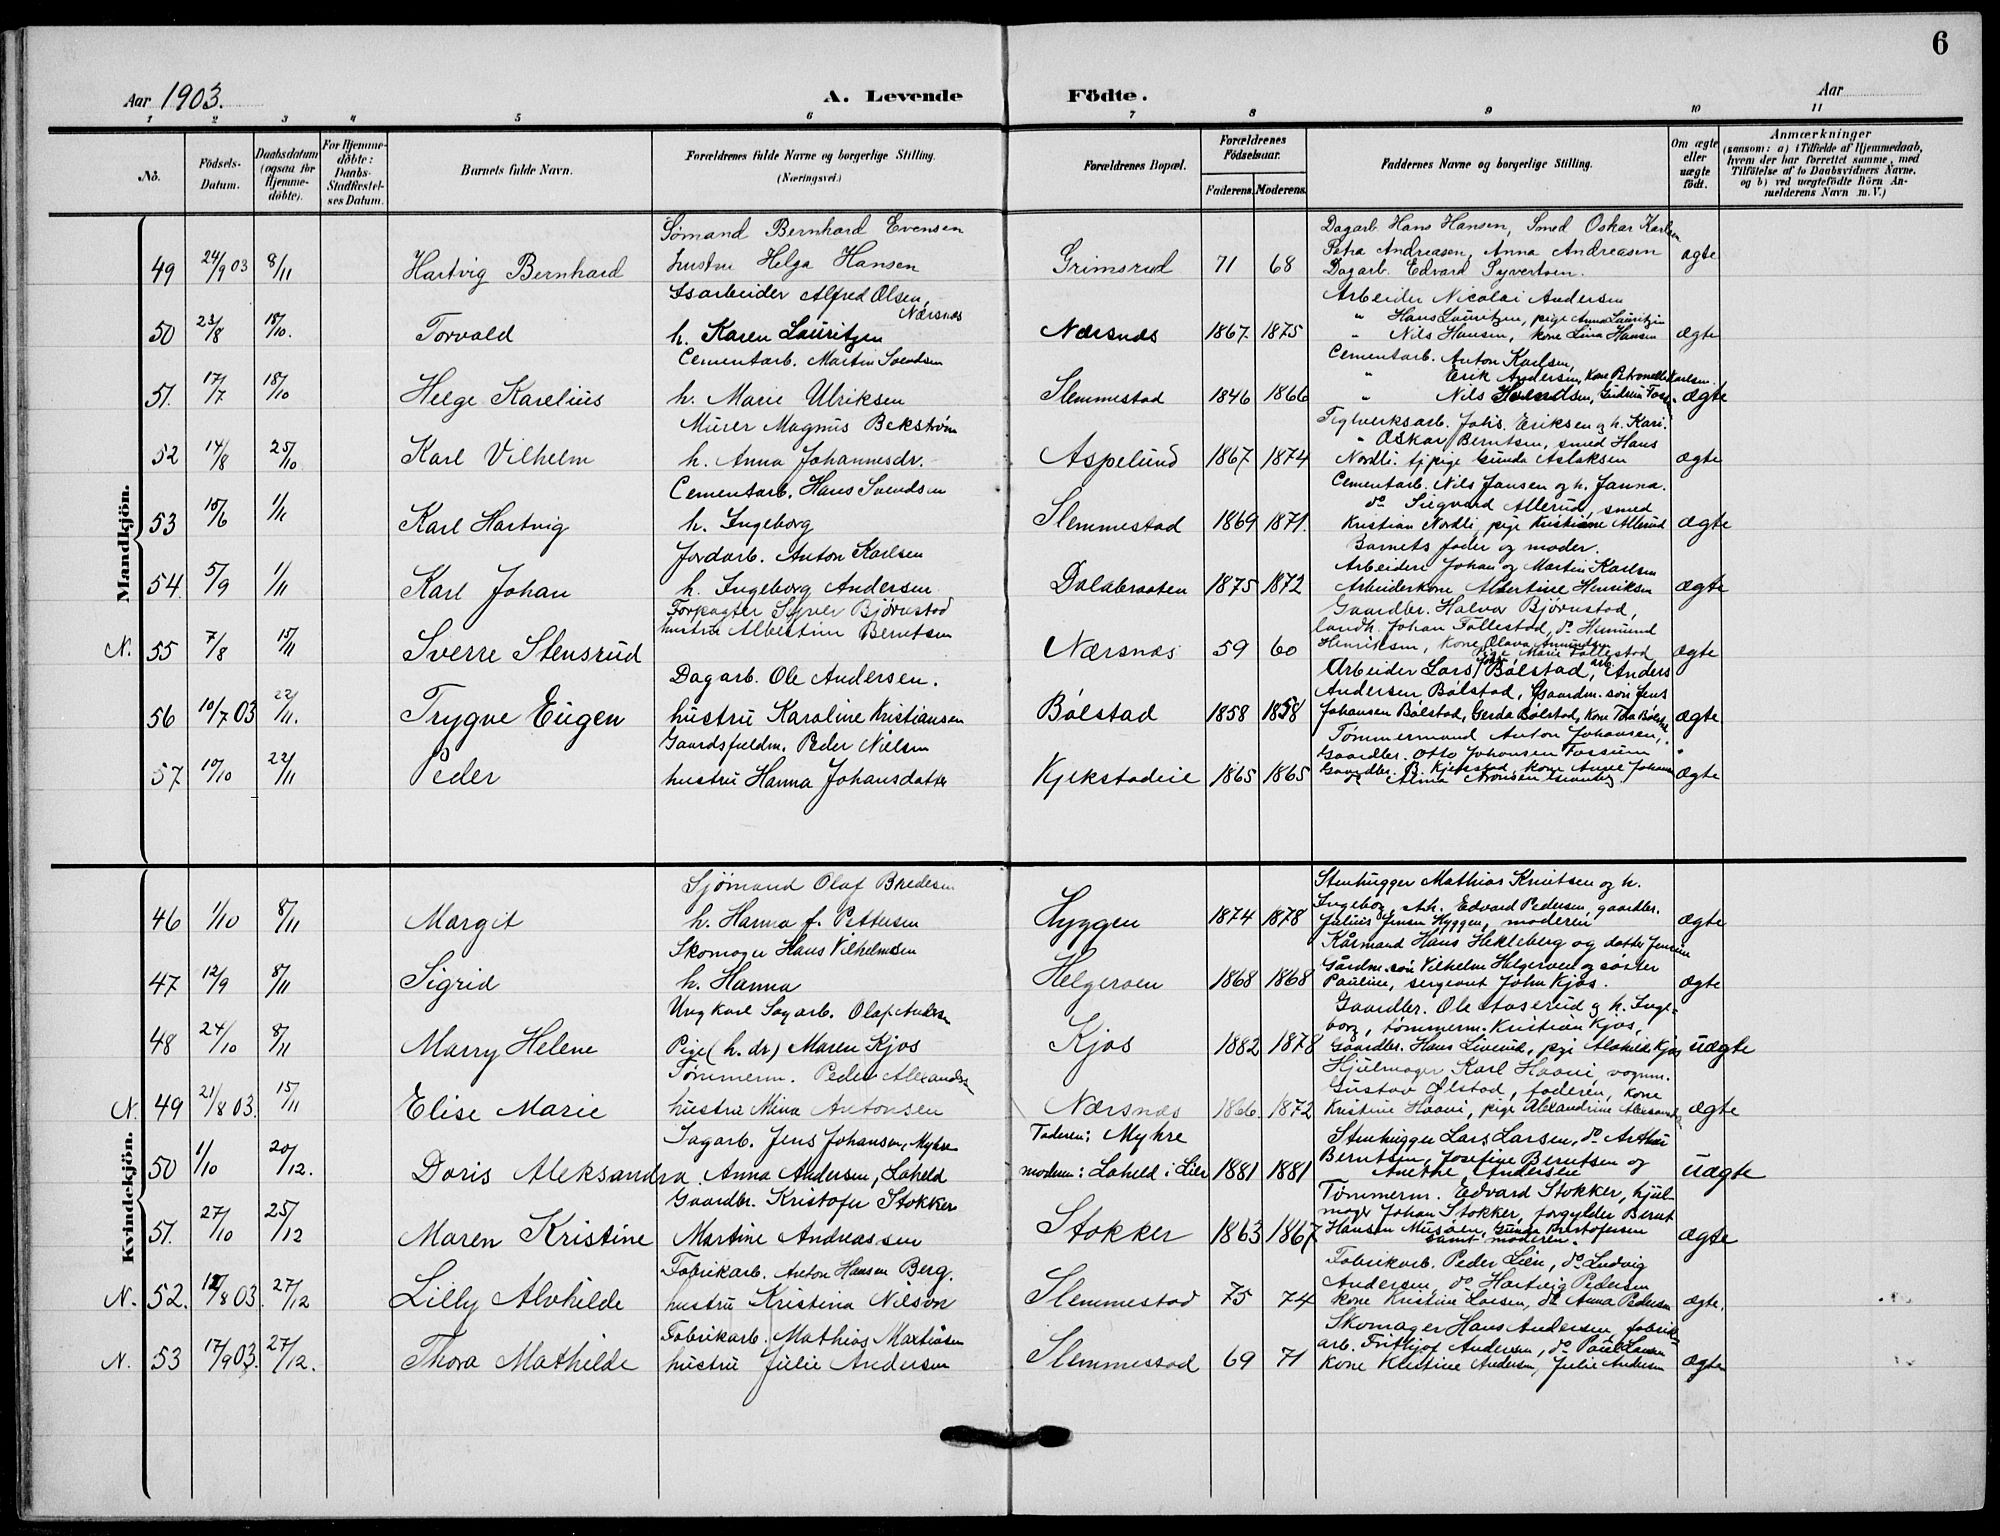 6
Aar 1903. A. Levende Födte. Aar
1 2 3 4 5 6 7 8 9 10 11
No. Födsels-Datum. Daabsdatum (ogsaa for Hjemme-döbte). For Hjemme-döbte: Daabs-Stadfæstel-ses Datum. Barnets fulde Navn. Forældrenes fulde Navne og borgerlige Stilling. (Næringsvei.) Forældrenes Bopæl. Forældrenes Födselsaar. Faderens. Moderens. Faddernes Navne og borgerlige Stilling. Om ægte eller uægte födt. Anmærkninger (saasom: a) i Tilfælde af Hjemmedaab, hvem der har forrettet samme, med Tilföielse af to Daabsvidners Navne, og b) ved uægtefödte Börn An-melderens Navn m. V.)
Mandkjön.
Sømand Bernhard Evensen Dagarb. Hans Hansen, Smed Oskar Karlsen
49 24/9 03 8/11 Hartvig Bernhard hustru Helga Hansen Grimsrud 71 68 Petra Andreasen, Anna Andreasen ægte
Dagarb. Edvard Syvertsen.
Isarbeider Alfred Olsen, Nærsnæs Arbeider Nicolai Andersen
" Hans Lauritzen, pige Anna Lauritzen
50 23/8 18/10. Torvald h. Karen Lauritzen Nærsnæs 1867 1875 " Nils Hansen, kone Lina Hansen ægte
Cementarb. Martin Svendsen Cementarb. Anton Karlsen,
" Erik Andersen, Kone Petronelle Karlsen.
51. 17/7 18/10 Helge Karelius h. Marie Ulriksen Slemmestad 1846 1866 " Nils Svendsen, Gudrun ægte
Murer Magnus Bekstrøm Teglverksarb. Johs. Eriksen og h. Kari.
" Oskar Berntsen, smed Hans
52 14/8 25/10 Karl Vilhelm h. Anna Johannesdr. Aspelund 1867 1874 Nordli. tj.pige Gunda Aslaksen ægte
Cementarb. Hans Svendsen Cementarb. Nils Jansen og h. Janna.
do Sigvard Allerud, smed
53 15/6 1/11 Karl Hartvig h. Ingeborg Slemmestad 1869 1871. Kristian Nordli, pige Kristiane Allerud ægte
Barnets fader og moder.
Jordarb. Anton Karlsen Arbeidere Johan og Martin Karlsen
54. 5/9 1/11 Karl Johan h. Ingeborg Andersen Dalabraaten 1875 1872 Arbeiderkone Albertine Henriksen ægte
Forpagter Syver Bjørnstad Gaardbr. Halvor Bjørnstad,
hustru Albertine Berntsen landh. Johan Follestad, do
N. 55 7/8 15/11 Sverre Stensrud Nærsnæs 59 60 Henriksen, kone Olava Amundsen ægte
Pige Marie Follestad
Dagarb. Ole Andersen. Arbeider Lars Bølstad, arb. Anders
Andersen Bølstad, Gaardm. søn Jens
56 10/7 03 22/11. Trygve Eugen hustru Karoline Kristiansen Bølstad 1858 1858 Johansen Bølstad, Gerda Bølstad, Kone Thea Bølstad ægte
Gaardsfuldm. Peder Nielsen Tømmermand Anton Johansen,
Gaardbr. Otto Johansen Fossum
57 10/10 22/11 Peder hustru Hanna Johansdatter Kjekstadeie 1865 1865 Gaardbr. B. Kjekstad, kone Anne Johansen ægte
Kvindekjön.
Sjømand Olaf Bredesen Stenhugger Mathias Knutsen og h.
Ingeborg, Edvard Pedersen, gaardbr.
46 1/10 8/11 Margit h. Hanna f. Pettersen Hyggen 1874 1878 Julius Jensen Hyggen, moderen ægte
Skomager Hans Vilhelmsen Kårmand Hans Hekleberg og datter
Gårdm. søn Vilhelm Helgeroen og søster
47 12/9 8/11 Sigrid h. Hanna Helgeroen 1868 1868 Pauline, sergeant John Kjos. ægte
Ungkarl Sagarb. Olaf Andersen Gaardbr. Ole Haserud og h. Inge-
borg, tømmerm. Kristian Kjos,
48 24/10 8/11 Marry Helene Pige (h. dr) Maren Kjos Kjos 1882 1878 Gaardbr. Hans Liverud, pige Alvhilde Kjos uægte
Tømmerm. Peder Alexandersen Hjulmager Karl Haavi, vognm.
Gustav Ølstad, faderen, kone
N. 49 21/8 03. 15/11 Elise Marie hustru Mina Antonsen Nærsnæs 1866 1872 Kristine Haavi, pige Alexandrine Alexandersen ægte
Sagarb. Jens Johansen, Myhre Faderen: Myhre Stenhugger Lars Larsen, do Arthur
Berntsen, Josefine Berntsen og
50 1/10 20/12. Doris Aleksandra. Anna Andersen, Loheld moderen: Loheld i Lier 1881 1881 Anethe Andersen uægte
Gaardbr. Kristofer Stokker Tømmerm. Edvard Stokker, hjul-
mager Johan Stokker, forgylder Bernt
51. 27/10 25/12 Maren Kristine Martine Andreassen Stokker 1863 1867 Hansen Musøen, Gunda Kristofersen ægte
samt moderen.
Fabrikarb. Anton Hansen Berg. Fabrikarb. Peder Lien, do Ludvig
Andersen, do Hartvig Pedersen
N. 52. 12/8 03. 27/12 Lilly Alvhilde hustru Kristina Nilson Slemmestad 75 74 kone Kristine Larsen, do Anna Pedersen ægte.
Fabrikarb. Mathias Martinsen Skomager Hans Andersen, fabrik-
arb. Frithjof Andersen, do Paul Larsen
N. 53 17/9 03. 27/12. Thora Mathilde hustru Julie Andersen Slemmestad 69 71 kone Kristine Andersen, Julie Andersen ægte